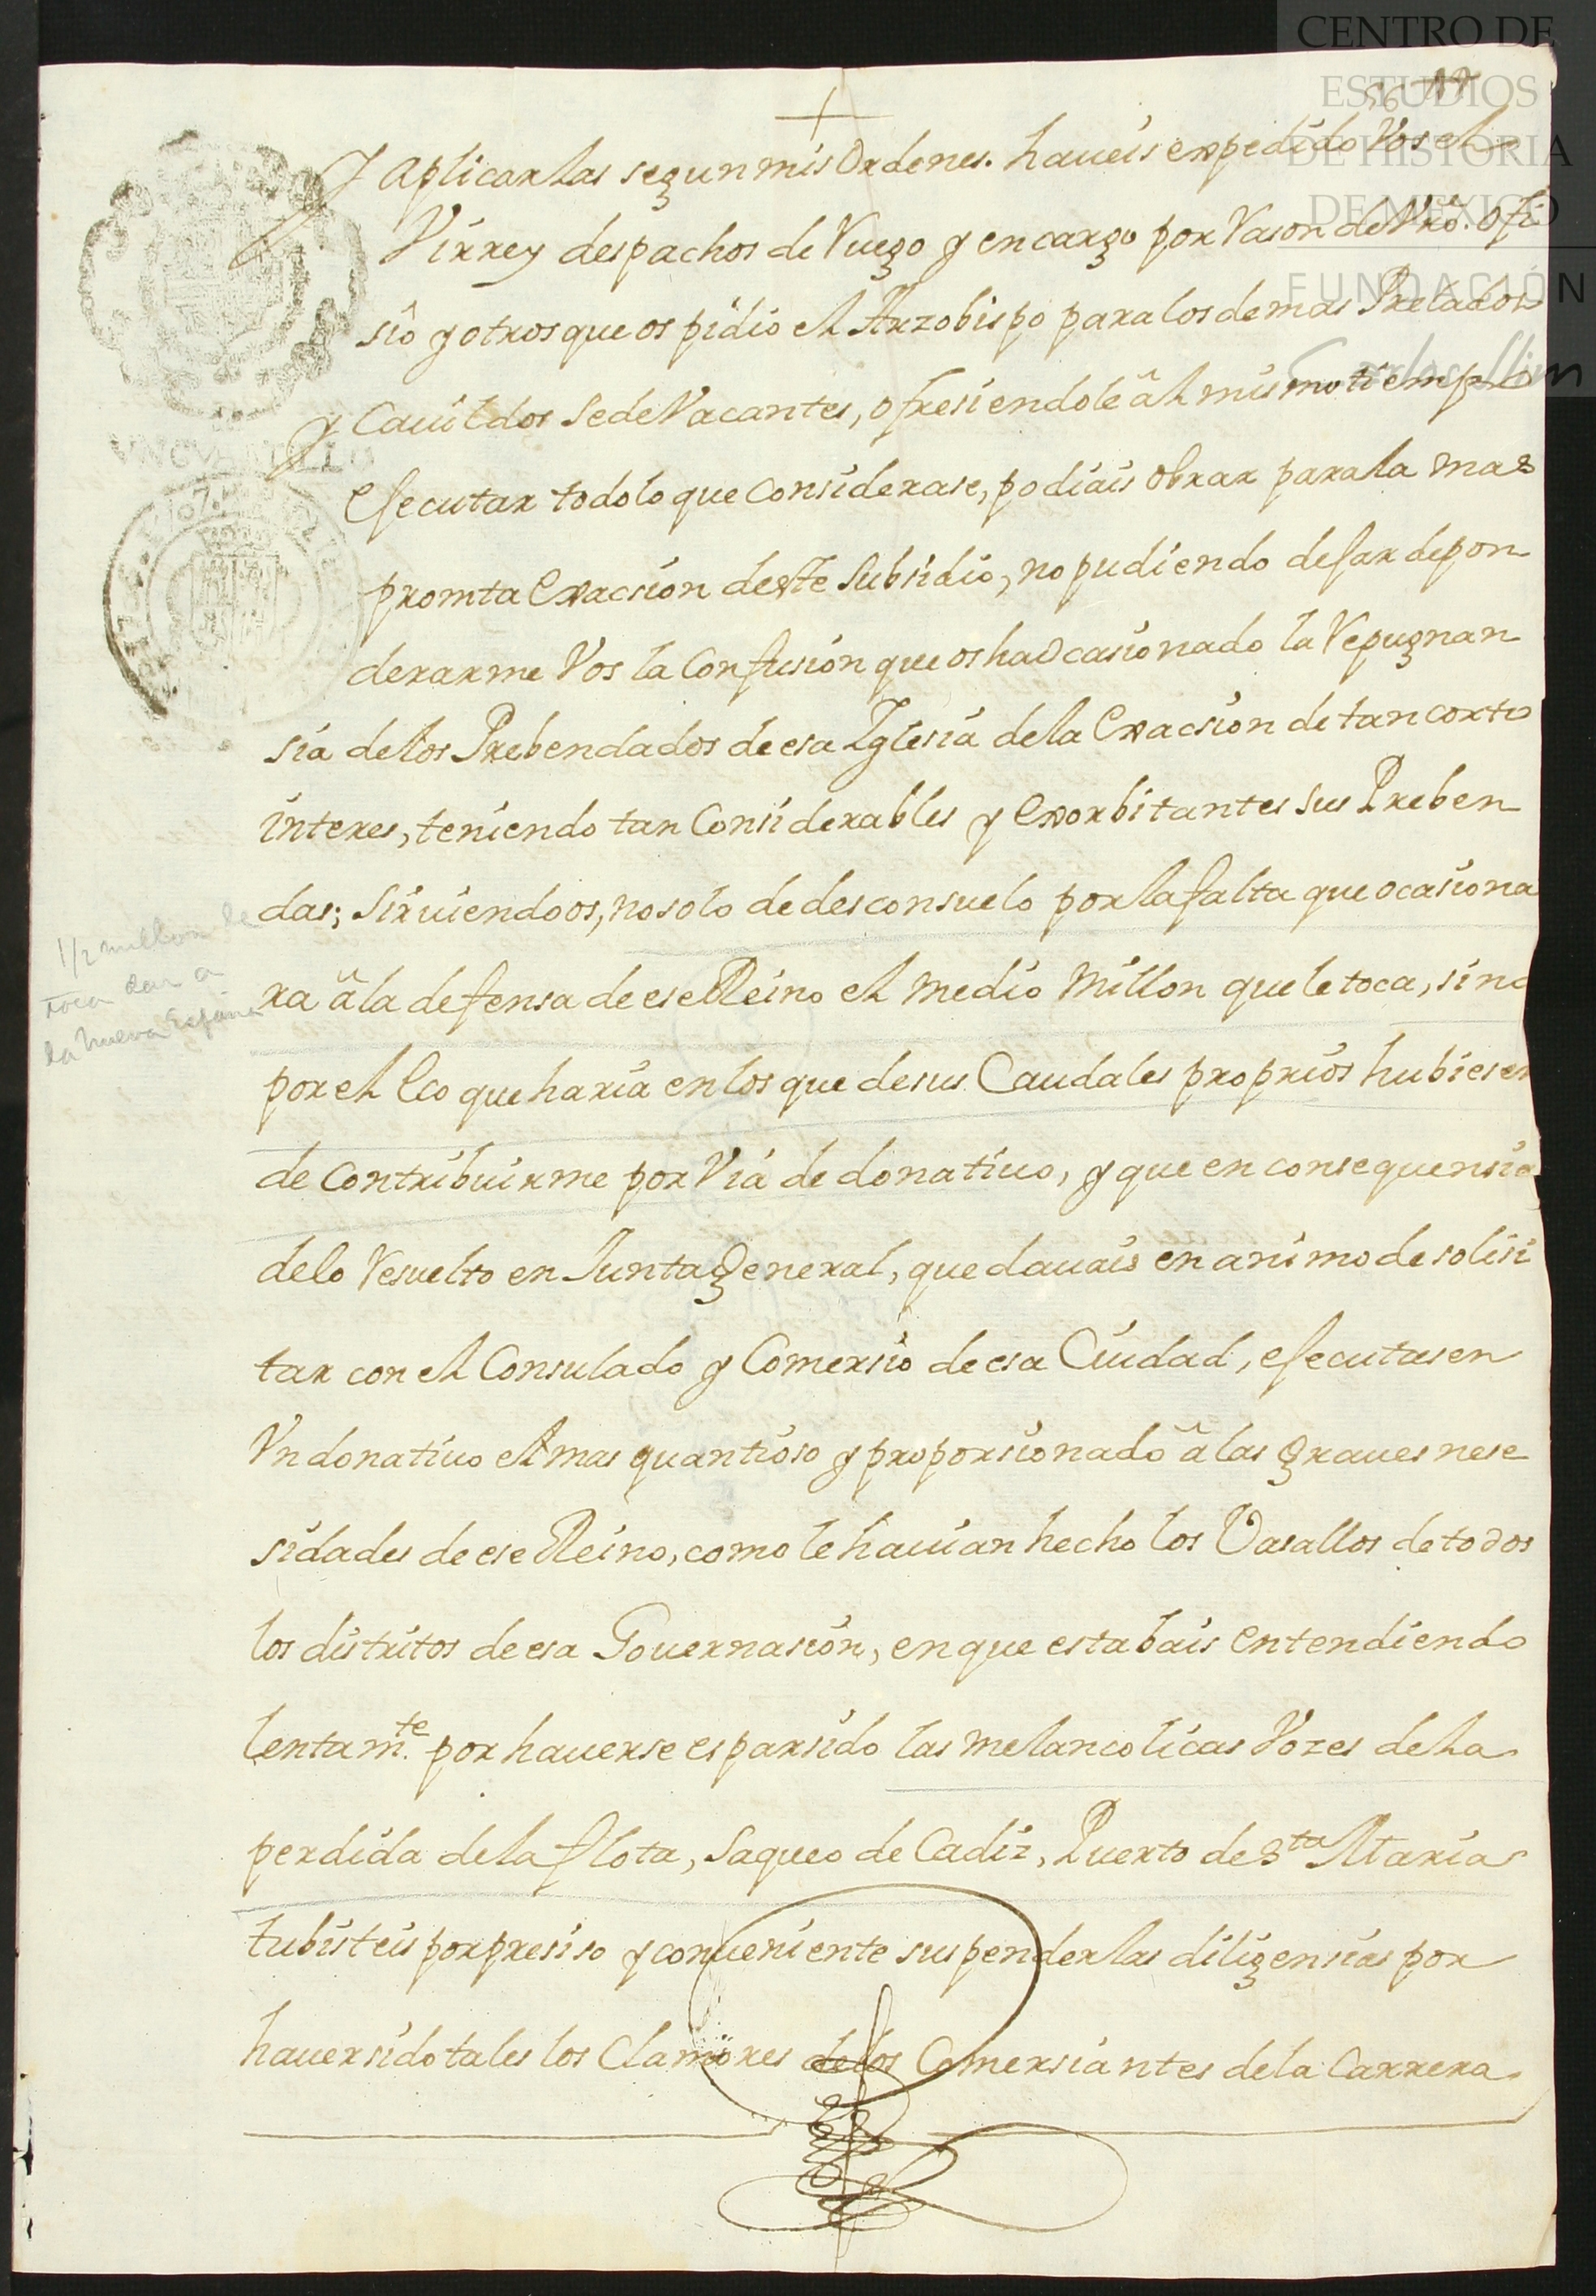 CENTRO DE
ESTUDIOS
DE HISTORIA
DE MEXICO
FUNDACIÓN
Carlos Slim
56 17
y aplicarlas segun mis Ordenes. haueis expedido Vos el
Virrey despachos de Ruego y encargo por Rason de Vr̃o. ofi
sio y otros que os pidio el Arzobispo para los demas Prelados
y Cauildos Sede Vacantes, ofresiendole â el mismo tiempo
efecutar todo lo que Considerase, podiais obrar para la mas
promta Exacsion deste Subsidio, no pudiendo defar de pon
derarme Vos la Confusion que os ha Ocasionado la Repugnan
sia de los Prebendados de esa Iglesia de la Exacsion de tan corto
interes, teniendo tan Considerables y Exorbitantes sus Preben
das; Siruiendoos, no solo de desconsuelo por la falta que ocasiona
ra â la defensa de ese Reino el medio Millon que le toca, sino
por el Eco que haria en los que de sus Caudales proprios hubiesen
de Contribuirme por Via de donatiuo, y que en consequensia
de lo Resuelto en Junta General, quedauais en animo de solisi
tar con el Consulado y Comersio de esa Ciudad, efecutasen
Vn donatiuo el mas quantioso y proporsionado â las graues nese
sidades de ese Reino, como le hauian hecho los Vasallos de todos
los distritos de esa Gouernasion, en que estabais entendiendo
lentam.te por hauerse esparsido las melancolicas Vozes de la
perdida de la flota, Saqueo de Cadiz, Puerto de S.ta Maria
tubisteis por presiso y conueniente suspender las diligensias por
hauer sido tales los Clamores de los Comersiantes de la Carrera
1/2 millon le
toca dar a
la nueva España